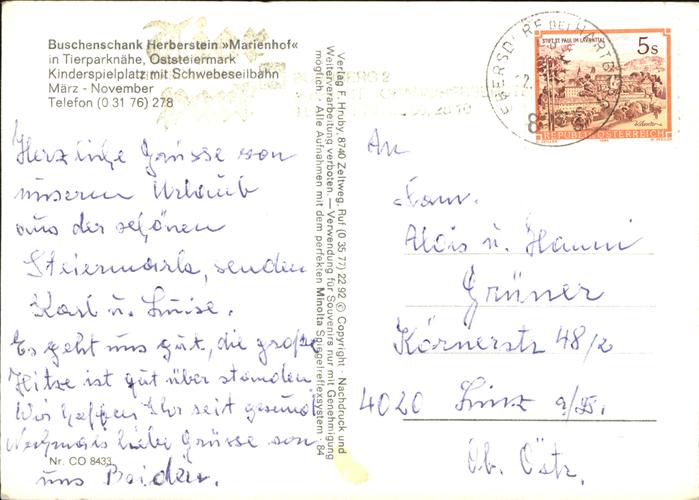 Buschenschank Herberstein »Marienhof«
in Tierparknähe, Oststeiermark
Kinderspielplatz mit Schwebeseilbahn
März - November
Telefon (0 31 76) 278
Herzliche Grüsse von
unserem Urlaub
aus der schönen
Steiermark, senden
Karl u. Luise.
Es geht uns gut, die große
Hitze ist gut überstanden
Wir hoffen Ihr seit gesund
Nochmals liebe Grüsse von
uns Beiden.
Nr. CO 8433
Verlag F. Hruby, 8740 Zeltweg, Ruf (0 35 77) 22 92 © Copyright · Nachdruck und
Weiterverarbeitung verboten. — Verwendung für Souvenirs nur mit Genehmigung
möglich · Alle Aufnahmen mit dem perfekten Minolta Spiegelreflexsystem · 84
STIFT ST. PAUL IM LAVANTTAL
5 S
REPUBLIK ÖSTERREICH
EBERSDORF BEI HARTBERG
An
Fam.
Alois u. Hanni
Grüner
Körnerstr 48/2
4020 Linz a/D.
Ob. Östr.